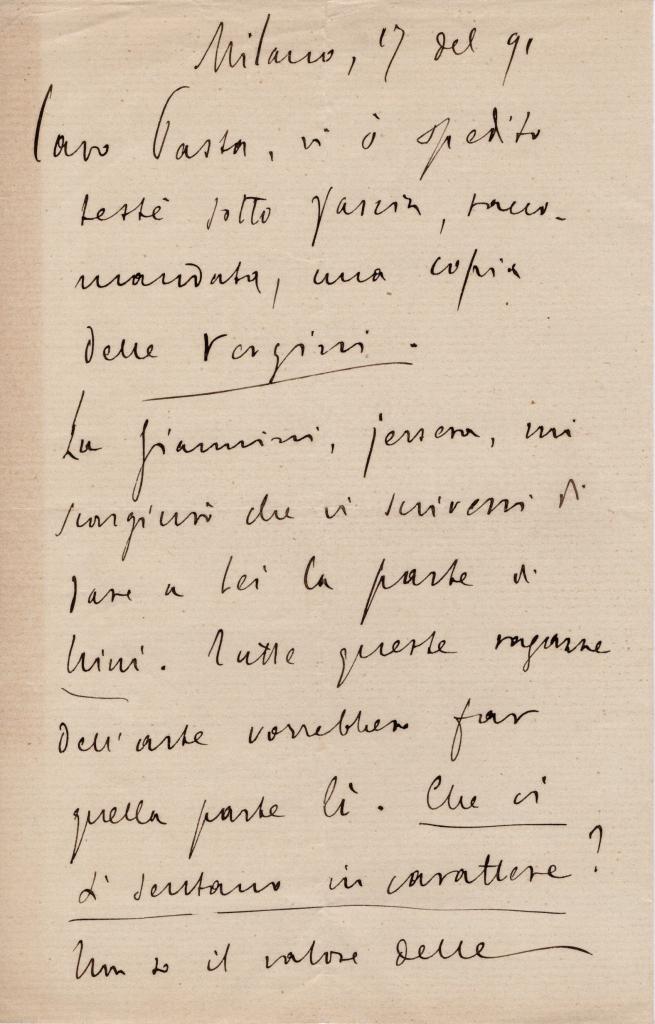 Milano, 17 del 91
Caro Pasta, vi ò spedito
testè sotto fascia, racco-
mandata, una copia
delle Vergini.
La Giannini, jersera, mi
scongiurò che vi scrivessi di
dare a lei la parte di
Nini. Tutte queste ragazze
dell'arte vorrebbero far
quella parte lì. Che vi
si sentano in carattere?
Non so il valore delle